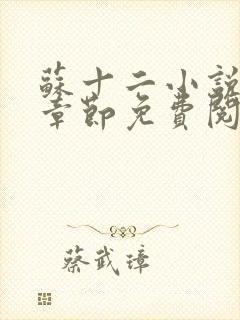 蘇十二小說
章節免費閱
蔡武璋